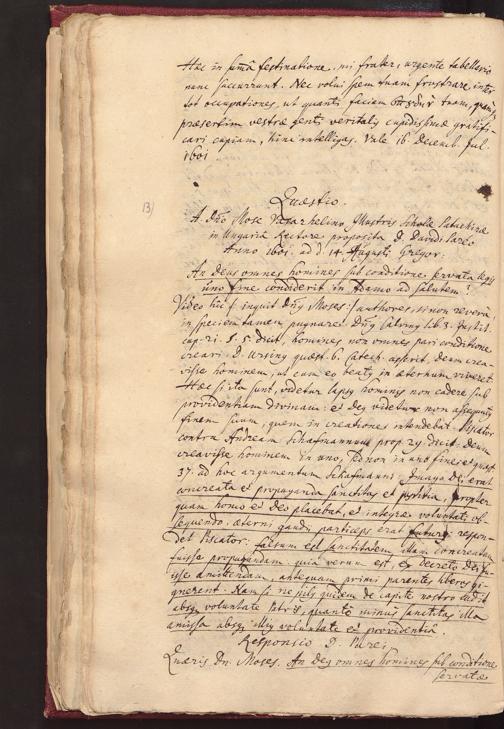 Hæc in summa festinatione, mi frater, urgente tabellario
nunc succurrunt. Nec volui spem tuam frustrare inter
tot occupationes, ut quanti faciam tuam, quam
præsertim vestræ genti veritatis cupidissimæ gratifi-
cari cupiam, hinc intelligas. Vale 16. Decemb. Jul.
1601
13)
Quæstio.
A Dño Mose Vasarhelino, Illustris Scholæ Patachinæ
in Ungaria Rectore proposita D. Davidi Pareo
Anno 1601. ad d. 14. Augusti Gregor:
An Deus omnes homines sub conditione servatæ legis
uno fine condiderit in Adamo ad salutem?
Video hic (inquit Dñg Moses:) authores, si non reverà,
in speciem tamen pugnare. Dñg Calving lib. 3. Instit.
cap. 21. §. 5. dicit, homines non omnes pari conditione
creari. D. Ursing quæst. 6. Catech. asserit, deum crea-
visse hominem, ut cum eo beatg in æternum viveret.
Hæc si ita sunt, videtur lapsg hominis non cadere sub
providentiam divinam: et deg videtur non assequutg
finem suum, quem in creatione intendebat. Piscator
contra Andream Schafmannum prop. 27. dicit: deum
creavisse hominem in uno, sed non in uno fine: et quæst
37. ad hoc argumentum Schafmanni: Imago dei erat
concreata et propaganda sanctitas et justitia, propter
quam homo et deo placebat, et integræ voluntati ob-
sequendo, æterni gaudij particeps erat futurg: respon-
det Piscator: falsum est sanctitatem illam concreatam
fuisse propagandam, quia verum est, ex decreto dei fu-
isse amittendam, antequam primi parentes liberos gi-
gnerent. Nam si ne pilg quidem de capite nostro cadit
absq; voluntate patris, quanto minus sanctitas illa
amissa absq; illig voluntate et providentia.
Responsio D. Parei
Quæris Dn. Moses. An deg omnes homines sub conditione
servatæ